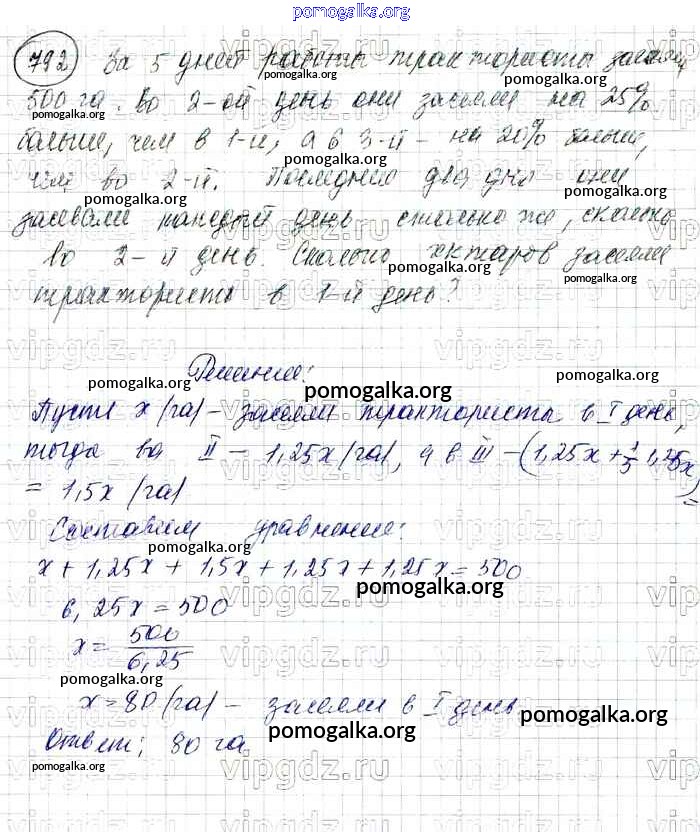 pomogalka.org
792 За 5 дней работы трактористы засеяли
500 га. Во 2-ой день они засеяли на 25%
больше, чем в 1-й, а в 3-й - на 20% больше,
чем во 2-й. Последние два дня они
засевали каждый день столько же, сколько
во 2-й день. Сколько гектаров засеяли
трактористы в 1-й день?
Решение:
Пусть x (га) - засеяли трактористы в I день,
тогда во II - 1,25x (га), а в III - (1,25x + 1/5 1,25x) =
= 1,5x (га)
Составим уравнение:
x + 1,25x + 1,5x + 1,25x + 1,25x = 500
6,25x = 500
x = 500/6,25
x = 80 (га) - засеяли в I день
Ответ: 80 га
vipgdz.ru